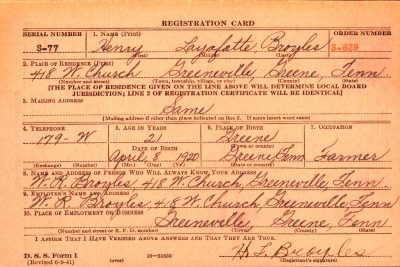 REGISTRATION CARD
SERIAL NUMBER 1. NAME (Print) ORDER NUMBER
S-77 Henry Layafatte Broyles S-629
(First) (Middle) (Last)
2. PLACE OF RESIDENCE (Print)
418 W. Church Greeneville, Greene, Tenn.
(Number and street) (Town, township, village, or city) (County) (State)
[THE PLACE OF RESIDENCE GIVEN ON THE LINE ABOVE WILL DETERMINE LOCAL BOARD
JURISDICTION; LINE 2 OF REGISTRATION CERTIFICATE WILL BE IDENTICAL]
3. MAILING ADDRESS
Same
[Mailing address if other than place indicated on line 2. If same insert word same]
4. TELEPHONE 5. AGE IN YEARS 6. PLACE OF BIRTH 7. OCCUPATION
179-W 21 Greene
DATE OF BIRTH (Town or county)
April 8 1920 Greene, Tenn Farmer
(Exchange) (Number) (Mo.) (Day) (Yr.) (State or country)
8. NAME AND ADDRESS OF PERSON WHO WILL ALWAYS KNOW YOUR ADDRESS
W. R. Broyles, 418 W. Church, Greeneville, Tenn.
9. EMPLOYER'S NAME AND ADDRESS
W. R. Broyles, 418 W. Church, Greeneville, Tenn
10. PLACE OF EMPLOYMENT OR BUSINESS
Greeneville, Greene, Tenn
(Number and street or R. F. D. number) (Town) (County) (State)
I AFFIRM THAT I HAVE VERIFIED ABOVE ANSWERS AND THAT THEY ARE TRUE.
H. L. Broyles
D. S. S. Form 1 (over) 16-21630 (Registrant's signature)
(Revised 6-9-41)